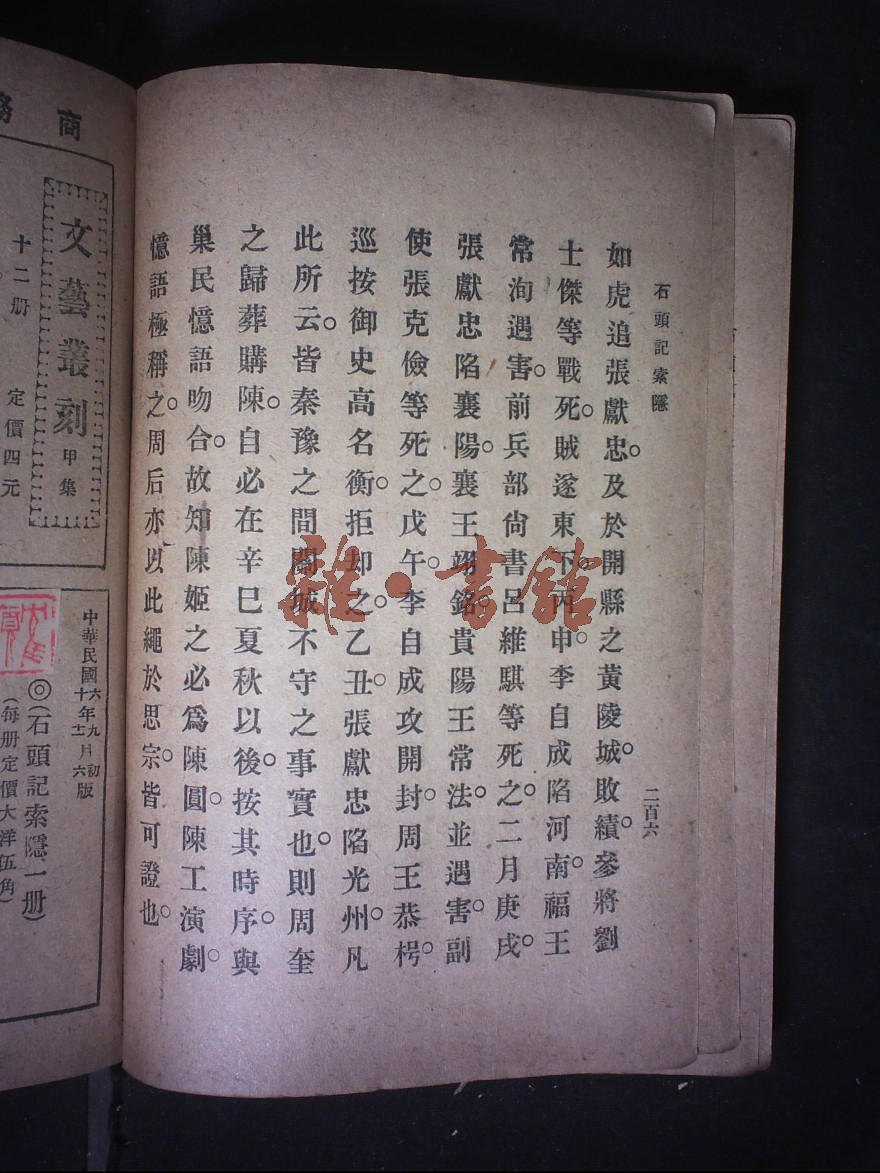 石頭記索隱
二百六
如虎追張獻忠。及於開縣之黃陵城。敗績。參將劉
士傑等戰死。賊遂東下。丙申。李自成陷河南。福王
常洵遇害。前兵部尙書呂維騏等死之。二月庚戌。
張獻忠陷襄陽。襄王翊銘。貴陽王常法。並遇害。副
使張克儉等死之。戊午。李自成攻開封。周王恭枵。
巡按御史高名衡。拒却之。乙丑。張獻忠陷光州。凡
此所云。皆秦豫之間關城不守之事實也。則周奎
之歸葬購陳。自必在辛巳夏秋以後。按其時序。與
巢民憶語吻合。故知陳姬之必爲陳圓。陳工演劇。
憶語極稱之。周后亦以此繩於思宗。皆可證也。
商務
文藝叢刻甲集
十二册 定價四元
中華民國六年九月初
十一月六版
◎(石頭記索隱一册)
(每册定價大洋伍角)
雜·書館